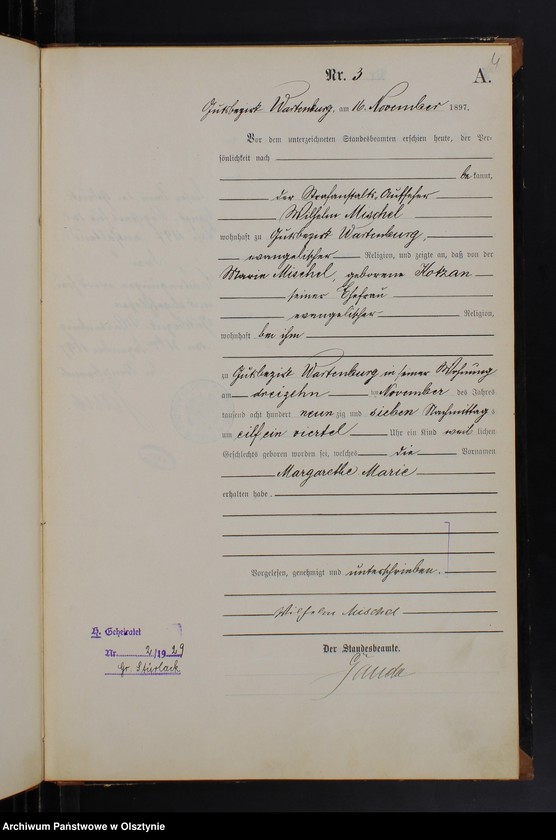 4
Nr. 3 A.
Gutsbezirk Wartenburg, am 16. November 1897.
Vor dem unterzeichneten Standesbeamten erschien heute, der Per-
sönlichkeit nach
be kannt,
der Strafanstalts-Aufseher
Wilhelm Mischel
wohnhaft zu Gutsbezirk Wartenburg,
evangelischer Religion, und zeigte an, daß von der
Marie Mischel, geborene Kotzan
seiner Ehefrau
evangelischer Religion,
wohnhaft bei ihm
zu Gutsbezirk Wartenburg in seiner Wohnung
am dreizehn ten November des Jahres
tausend acht hundert neun zig und sieben Nachmittag s
um eilf ein viertel Uhr ein Kind weib lichen
Geschlechts geboren worden sei, welches die Vornamen
Margarethe Marie
erhalten habe.
Vorgelesen, genehmigt und unterschrieben.
Wilhelm Mischel
H. Geheiratet
Nr. 2/1929
Gr. Stürlack
Der Standesbeamte.
Archiwum Państwowe w Olsztynie